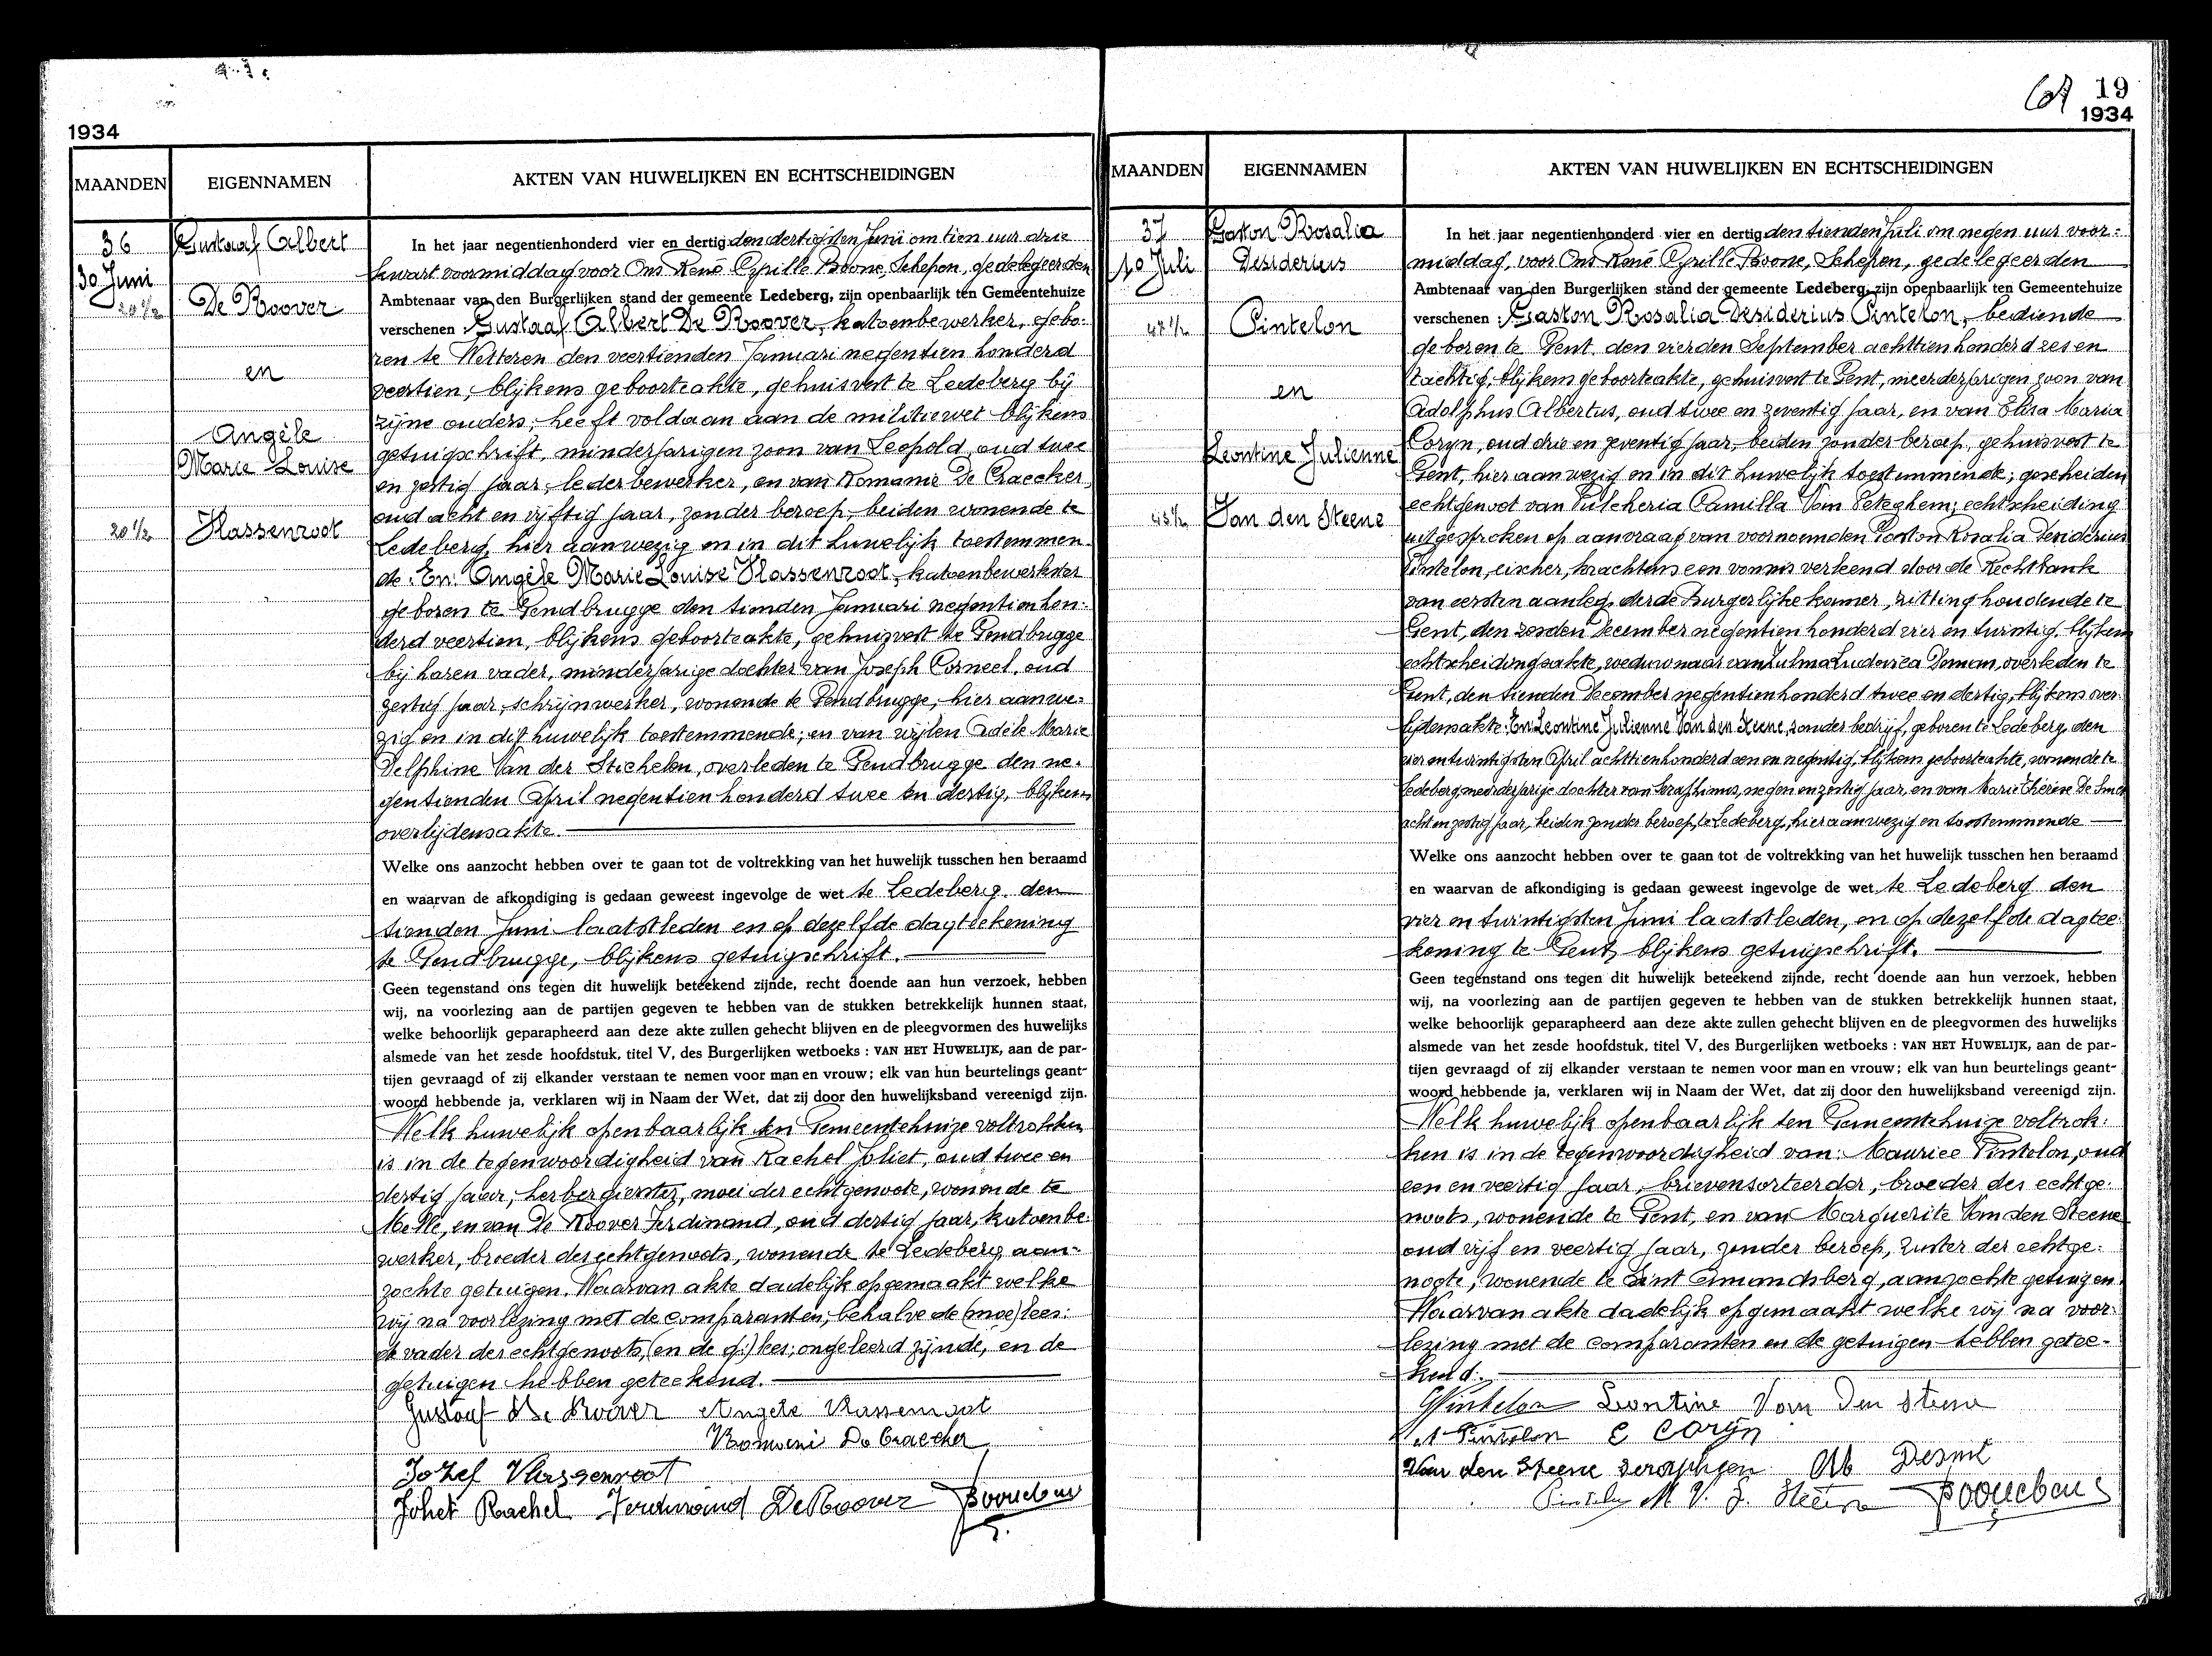 1934
MAANDEN
EIGENNAMEN
AKTEN VAN HUWELIJKEN EN ECHTSCHEIDINGEN
36
30 Juni
20 1/2
Gustaaf Albert
De Roover
en
Angèle
Marie Louise
20 1/2
Vlassenroot
In het jaar negentienhonderd vier en dertig den dertigsten Juni om tien uur drie
kwart voormiddag voor Ons René Cyrille Boone, Schepen, gedelegeerden
Ambtenaar van den Burgerlijken stand der gemeente Ledeberg, zijn openbaarlijk ten Gemeentehuize
verschenen : Gustaaf Albert De Roover, katoenbewerker, gebo-
ren te Wetteren den veertienden Januari negentien honderd
veertien, blijkens geboorteakte, gehuisvest te Ledeberg bij
zijne ouders; heeft voldaan aan de militiewet blijkens
getuigschrift, minderjarigen zoon van Leopold, oud twee
en zestig jaar, lederbewerker, en van Romanie De Craecker,
oud acht en vijftig jaar, zonder beroep, beiden wonende te
Ledeberg, hier aanwezig en in dit huwelijk toestemmen-
de. En: Angèle Marie Louise Vlassenroot, katoenbewerkster
geboren te Gendbrugge den tienden Januari negentienhon-
derd veertien, blijkens geboorteakte, gehuisvest te Gendbrugge
bij haren vader, minderjarige dochter van Joseph Corneel, oud
zestig jaar, schrijnwerker, wonende te Gendbrugge, hier aanwe-
zig en in dit huwelijk toestemmende; en van wijlen Adèle Marie
Delphine Van der Stichelen, overleden te Gendbrugge den ne-
gentienden April negentien honderd twee en dertig, blijkens
overlijdensakte.
Welke ons aanzocht hebben over te gaan tot de voltrekking van het huwelijk tusschen hen beraamd
en waarvan de afkondiging is gedaan geweest ingevolge de wet te Ledeberg den
tienden Juni laatstleden en op dezelfde dagteekening
te Gendbrugge, blijkens getuigschrift.
Geen tegenstand ons tegen dit huwelijk beteekend zijnde, recht doende aan hun verzoek, hebben
wij, na voorlezing aan de partijen gegeven te hebben van de stukken betrekkelijk hunnen staat,
welke behoorlijk geparapheerd aan deze akte zullen gehecht blijven en de pleegvormen des huwelijks
alsmede van het zesde hoofdstuk, titel V, des Burgerlijken wetboeks : VAN HET HUWELIJK, aan de par-
tijen gevraagd of zij elkander verstaan te nemen voor man en vrouw; elk van hun beurtelings geant-
woord hebbende ja, verklaren wij in Naam der Wet, dat zij door den huwelijksband vereenigd zijn.
Welk huwelijk openbaarlijk ten Gemeentehuize voltrokken
is in de tegenwoordigheid van Rachel Joliet, oud twee en
dertig jaar, herbergierster, moei der echtgenoote, wonende te
Melle, en van De Roover Ferdinand, oud dertig jaar, katoenbe-
werker, broeder des echtgenoots, wonende te Ledeberg aan-
zochte getuigen. Waarvan akte dadelijk opgemaakt welke
wij na voorlezing met de comparanten, behalve de (moe) lees:
de vader der echtgenoots, (en de g:) lees: ongeleerd zijnde, en de
getuigen hebben geteekend.
Gustaaf De Roover Angele Vlassenroot
Romani De Craecker
Jozef Vlassenroot
Joliet Rachel Ferdinand De Roover
19
1934
MAANDEN
EIGENNAMEN
AKTEN VAN HUWELIJKEN EN ECHTSCHEIDINGEN
37
10 Juli
47 1/2
Gaston Rosalia
Desiderius
Pintelon
en
Leontine Julienne
Van den Steene
In het jaar negentienhonderd vier en dertig den tienden Juli om negen uur voor-
middag, voor Ons René Cyrille Boone, Schepen, gedelegeerden
Ambtenaar van den Burgerlijken stand der gemeente Ledeberg, zijn openbaarlijk ten Gemeentehuize
verschenen : Gaston Rosalia Desiderius Pintelon, bediende
geboren te Gent den vierden September achttienhonderd zes en
tachtig, blijkens geboorteakte, gehuisvest te Gent, meerderjarigen zoon van
Adolphus Albertus, oud twee en zeventig jaar, en van Elisa Maria
Coryn, oud drie en zeventig jaar, beiden zonder beroep, gehuisvest te
Gent, hier aanwezig en in dit huwelijk toestemmende; gescheiden
echtgenoot van Pulcheria Camilla Van Peteghem; echtscheiding
uitgesproken op aanvraag van voornoemden Gaston Rosalia Desiderius
Pintelon, eischer, krachtens een vonnis verleend door de Rechtbank
van eersten aanleg, derde burgerlijke kamer, zitting houdende te
Gent, den zesden December negentien honderd vier en twintig, blijkens
echtscheidingsakte, weduwnaar van Zulma Ludovica Doman, overleden te
Gent, den tienden December negentienhonderd twee en dertig, blijkens over-
lijdensakte. En: Leontine Julienne Van den Steene, zonder bedrijf, geboren te Ledeberg, den
vier en twintigsten April achttienhonderd een en negentig, blijkens geboorteakte, wonende te
Ledeberg, meerderjarige dochter van Seraphinus, negen en zestig jaar, en van Marie Thérèse De Smet
acht en zestig jaar, beiden zonder beroep, te Ledeberg, hier aanwezig en toestemmende
Welke ons aanzocht hebben over te gaan tot de voltrekking van het huwelijk tusschen hen beraamd
en waarvan de afkondiging is gedaan geweest ingevolge de wet te Ledeberg den
vier en twintigsten Juni laatstleden, en op dezelfde dagtee-
kening te Gent, blijkens getuigschrift.
Geen tegenstand ons tegen dit huwelijk beteekend zijnde, recht doende aan hun verzoek, hebben
wij, na voorlezing aan de partijen gegeven te hebben van de stukken betrekkelijk hunnen staat,
welke behoorlijk geparapheerd aan deze akte zullen gehecht blijven en de pleegvormen des huwelijks
alsmede van het zesde hoofdstuk, titel V, des Burgerlijken wetboeks : VAN HET HUWELIJK, aan de par-
tijen gevraagd of zij elkander verstaan te nemen voor man en vrouw; elk van hun beurtelings geant-
woord hebbende ja, verklaren wij in Naam der Wet, dat zij door den huwelijksband vereenigd zijn.
Welk huwelijk openbaarlijk ten Gemeentehuize voltrok-
ken is in de tegenwoordigheid van: Maurice Pintelon, oud
een en veertig jaar, brievensorteerder, broeder des echtge-
noots, wonende te Gent, en van Marguerite Van den Steene
oud vijf en veertig jaar, zonder beroep, zuster der echtge-
noote, wonende te Sint Amandsberg, aanzochte getuigen.
Waarvan akte dadelijk opgemaakt welke wij na voor-
lezing met de comparanten en de getuigen hebben getee-
kend.
GPintelon Leontine Van Den Steene
A Pintelon E Coryn
Van den Steene Seraphien Desmet
Pintelon M V. d. Steene